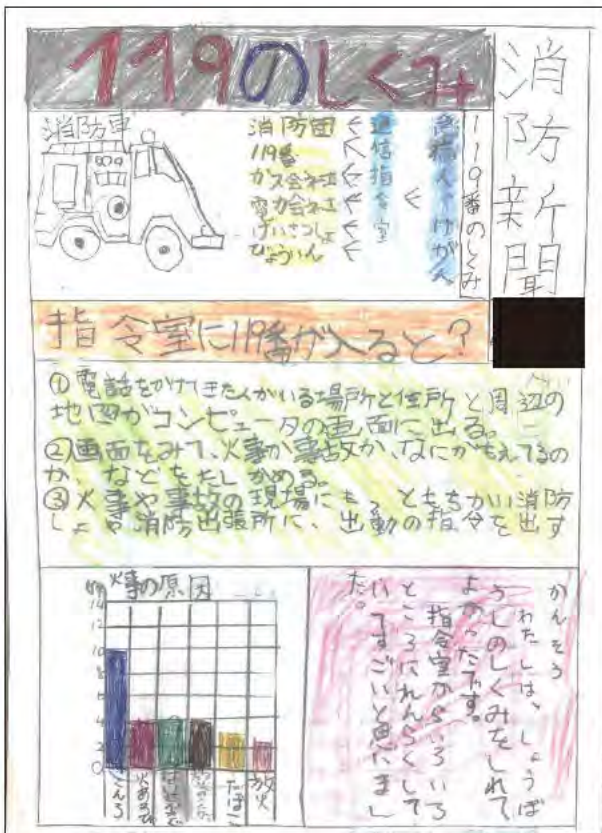 消防新聞
119のしくみ
119番のしくみ
急病人やけが人
通信指令室
消防団
119番
ガス会社
電力会社
けいさつしょ
びょういん
消防車
指令室に119番が入ると?
①電話をかけてきた人がいる場所と住所と周辺の
地図がコンピュータの画面に出る。
②画面をみて、火事か事故か、なにがもえてるの
か、などをたしかめる。
③火事や事故の現場にもっともちかい消防
しょや消防出張所に、出動の指令を出す
火事の原因
14
12
10
8
6
4
2
0
こんろ
火あそび
たばこ
放火
かんそう
わたしは、しょうぼ
うしのしくみをしれて
よかったです。
指令室からいろいろ
ところにれんらくして
いてすごいと思いまし
た。